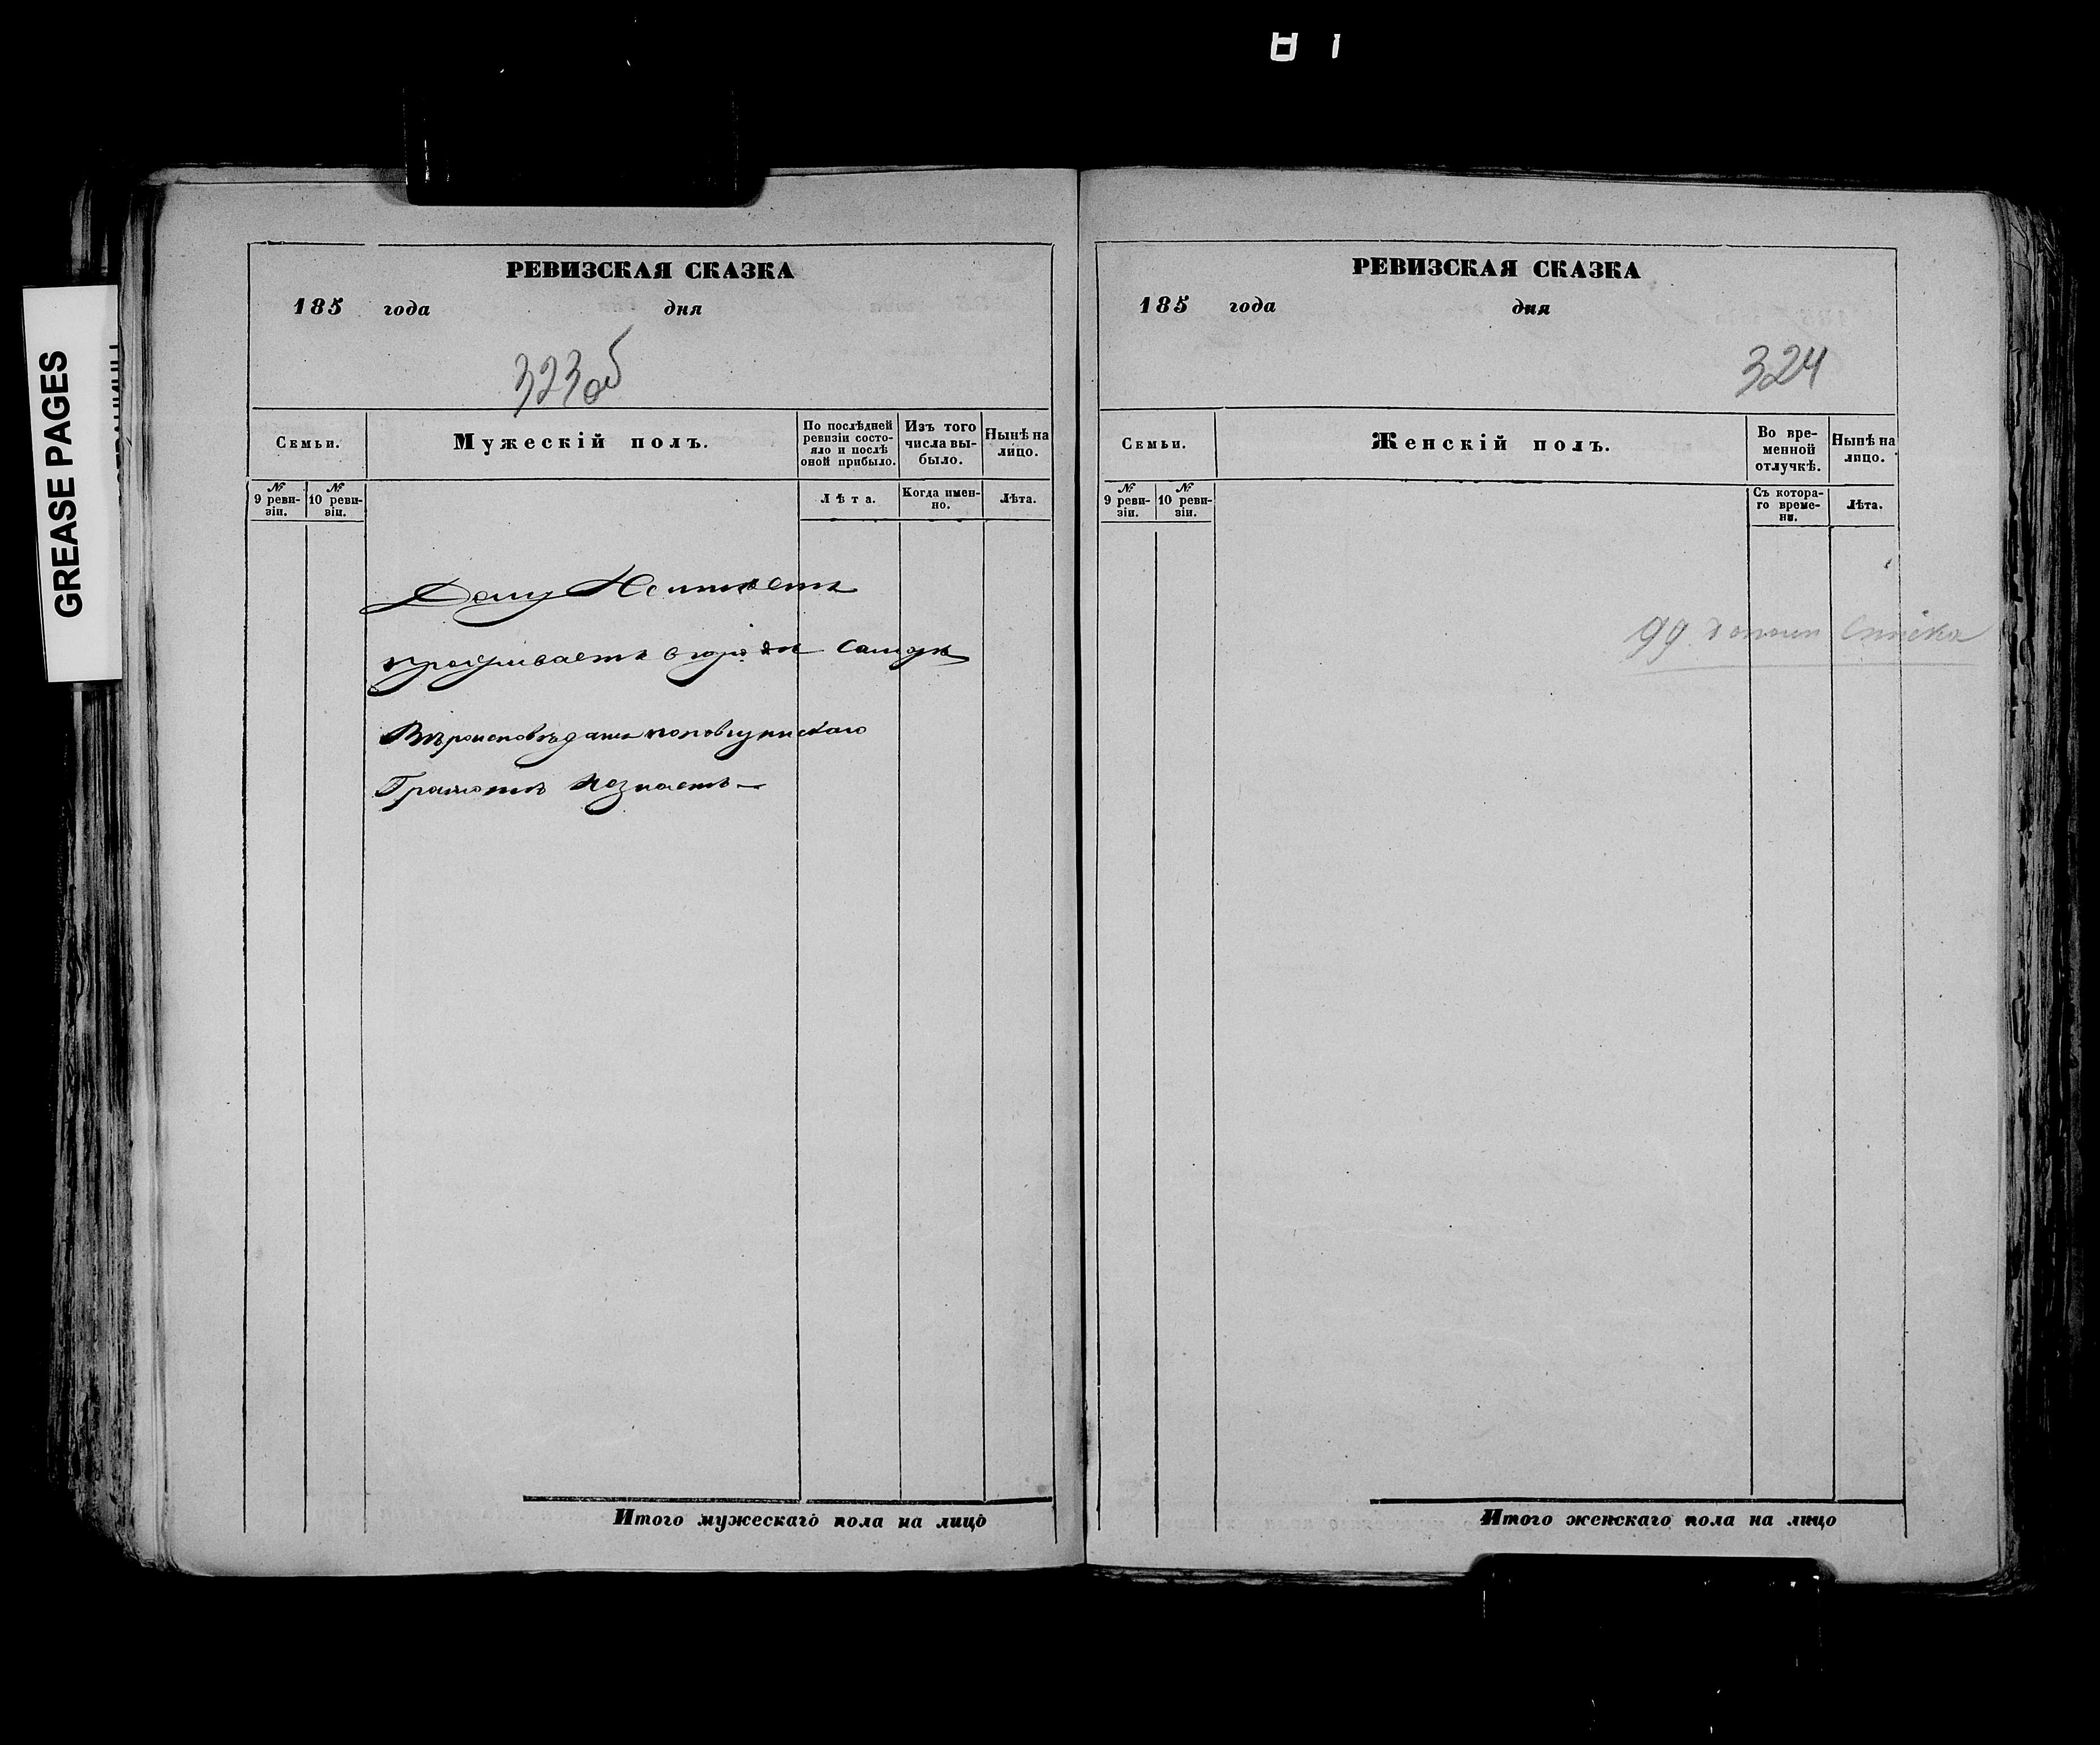 GREASE PAGES
РЕВИЗСКАЯ СКАЗКА
185 года дня
323об
Семьи.
Мужескiй полъ.
По послѣдней ревизiи состояло и послѣ оной прибыло.
Изъ того числа выбыло.
Нынѣ на лицо.
№ 9 ревизiи.
№ 10 ревизiи.
Лѣта.
Когда именно.
Лѣта.
Дому Неимѣетъ
проживаетъ в городѣ
Вѣроисповѣданiя
Грамотѣ незнаетъ
Итого мужескаго пола на лицо
РЕВИЗСКАЯ СКАЗКА
185 года дня
324
Семьи.
Женскiй полъ.
Во временной отлучкѣ.
Нынѣ на лицо.
№ 9 ревизiи.
№ 10 ревизiи.
Съ котораго времени.
Лѣта.
99 списка
Итого женскаго пола на лицо